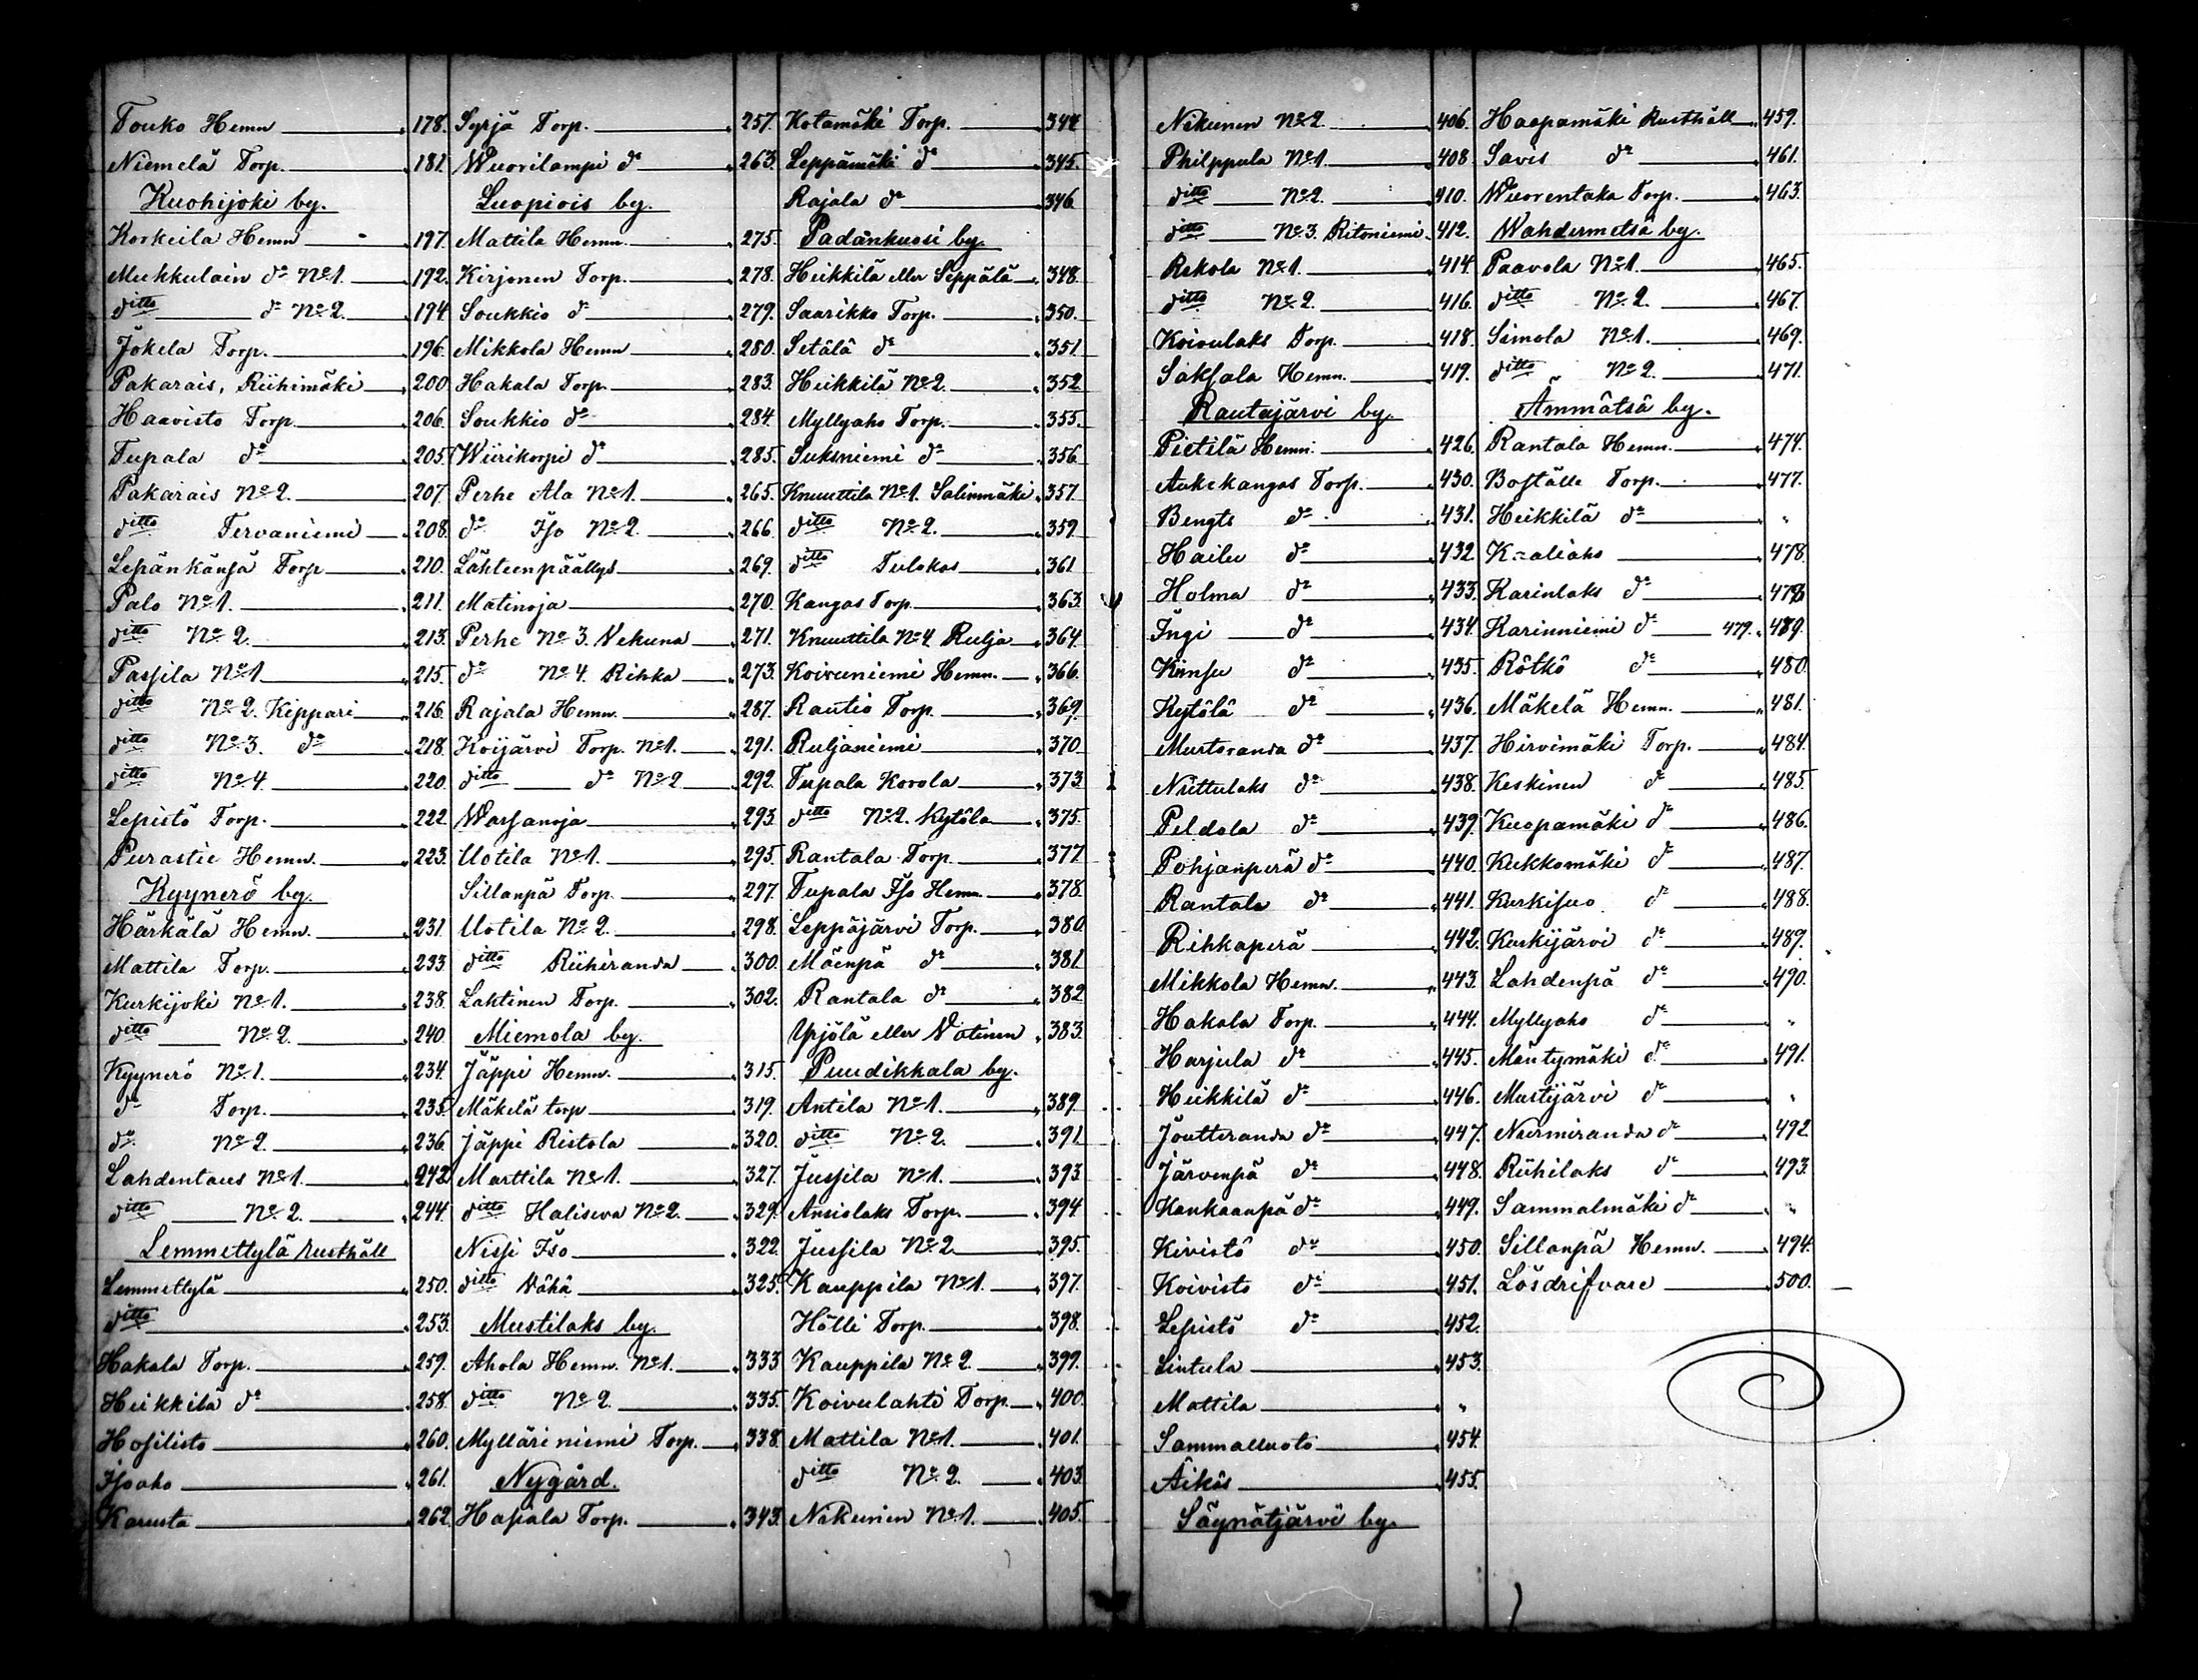 Touko Hemn 178.
Niemelä Torp. 181.
Kuohijoki by.
Korkeila Hemn 197.
Mukkulain do No 1. 192.
ditto do No 2. 194.
Jokela Torp. 196.
Pakarais, Riihimäki 200.
Haavisto Torp 206.
Tupala do 205.
Pakarais No 2. 207.
ditto Tervaniemi 208.
Lepänkänsä Torp 210.
Palo No 1. 211.
ditto No 2. 213.
Passila No 1 215.
ditto No 2. Kippari 216.
ditto No 3. do 218.
ditto No 4. 220.
Lepistö Torp. 222.
Purastie Hemn. 223.
Kyynerö by.
Härkälä Hemn. 231.
Mattila Torp. 233
Kurkijoki No 1. 238.
ditto No 2. 240.
Kyynerö No 1. 234.
do Torp. 235.
do No 2. 236.
Lahdentaus No 1. 242.
ditto No 2. 244.
Lemmettylä rusthåll
Lemmettylä 250.
ditto 253.
Hakala Torp. 259.
Heikkilä do 258.
Hosilisto 260.
Isoaho 261.
Karusta 262.
Syrjä Torp. 257.
Wuorilampi do 263.
Luopiois by.
Mattila Hemn. 275.
Kirjonen Torp. 278.
Soukkio do 279.
Mikkola Hemn 280.
Hakala Torp. 283.
Soukkio do 284.
Wiirikorpi do 285.
Perhe Ala No 1. 265.
do Iso No 2. 266.
Lähteenpäällys 269.
Matinoja 270.
Perhe No 3. Vekuna 271.
do No 4. Rihka 273.
Rajala Hemn. 287.
Koijärvi Torp. No 1. 291.
ditto do No 2 292.
Warsanoja 293.
Uotila No 1. 295.
Sillanpä Torp. 297.
Uotila No 2. 298.
ditto Riihiranda 300.
Lahtinen Torp. 302.
Miemola by.
Jäppi Hemn. 315.
Mäkelä torp 319.
Jäppi Ristola 320.
Marttila No 1. 327.
ditto Haliseva No 2. 329.
Nissi Iso 322.
ditto Vähä 325.
Mustilaks by.
Ahola Hemn. No 1. 333
ditto No 2. 335.
Mylläriniemi Torp. 338.
Nygård.
Hapala Torp. 343.
Kotamäki Torp. 344
Leppämäki do 345.
Rajala do 346.
Padankuosi by.
Heikkilä eller Seppälä 348.
Saarikko Torp. 350.
Setälä do 351.
Heikkilä No 2. 352
Myllyaho Torp. 355.
Suksniemi do 356.
Knuuttila No 1. Salinmäki 357
ditto No 2. 359.
ditto Tulokas 361
Kangas Torp. 363.
Knuuttila No 4 Rulja 364.
Koivuniemi Hemn. 366.
Rautio Torp. 369.
Ruljaniemi 370.
Tupala Korola 373
ditto No 2. Kytöla 375.
Rantala Torp. 377.
Tupala Iso Hemn. 378.
Leppäjärvi Torp. 380.
Mäenpä do 381.
Rantala do 382
Ypjölä eller Votinen 383.
Puudikkala by.
Antila No 1. 389.
ditto No 2. 391
Jussila No 1. 393
Ansiolaks Torp. 394
Jussila No 2 395.
Kauppila No 1. 397.
Hölli Torp. 398.
Kauppila No 2 399.
Koivulahti Torp. 400.
Mattila No 1. 401.
ditto No 2. 403.
Nikunen No 1. 405.
Nikunen No 2. 406.
Philppula No 1. 408
ditto No 2. 410.
ditto No 3. Ritoniemi 412.
Rekola No 1. 414.
ditto No 2. 416.
Koivulaks Torp. 418.
Saksala Hemn. 419.
Rautajärvi by.
Pietilä Hemn. 426.
Aukekangas Torp. 430.
Bengts do 431.
Hailu do 432.
Holma do 433.
Ingi do 434.
Kiinsu do 435.
Kytölä do 436.
Mustaranda do 437.
Niittulaks do 438.
Peldola do 439.
Pohjanperä do 440.
Rantala do 441.
Rihkaperä 442.
Mikkola Hemn. 443.
Hakala Torp. 444.
Harjula do 445.
Heikkilä do 446.
Joutteranda do 447.
Järvenpä do 448.
Kankaanpä do 449.
Kivistö do 450.
Koivisto do 451.
Lepistö do 452.
Lintula 453.
Mattila "
Sammalluoto 454.
Äikäs 455.
Säynätjärvi by.
Haapamäki Rusthåll 459.
Savis do 461.
Wuorentaka Torp. 463.
Wahdermetsä by.
Paavola No 1. 465.
ditto No 2. 467.
Simola No 1. 469.
ditto No 2. 471.
Ämmätsä by.
Rantala Hemn. 474.
Boställe Torp. 477.
Heikkilä do "
K=aliaho 478.
Karinlaks do 478
Karinniemi do 479. 489.
Rötkö do 480.
Mäkelä Hemn. 481.
Hirvimäki Torp. 484.
Keskinen do 485.
Kuopamäki do 486.
Kukkomäki do 487.
Kurkisuo do 488.
Kurkijärvi do 489.
Lahdenpä do 490.
Myllyaho do "
Mäntymäki do 491.
Mustijärvi do "
Nurmiranda do 492
Riihilaks do 493.
Sammalmäki do "
Sillanpä Hemn. 494.
Lösdrifvare 500.